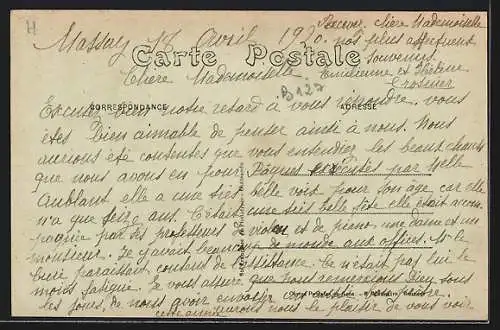 H
Massay 17 Avril 1910.
Recevez, chère Mademoiselle
nos plus affectueux
souvenirs.
Emilienne et Thérèse
Crosnier
Carte Postale
Chère Mademoiselle
B127
CORRESPONDANCE
ADRESSE
Excusez bien notre retard à vous répondre. vous
êtes bien aimable de penser ainsi à nous. Nous
aurions été contentes que vous entendiez les beaux chants
que nous avons eu pour Pâques exécutés par Melle
Aublant elle a une très belle voix pour son âge car elle
n'a que seize ans. C'était une très belle fête elle était accom
pagnée par des professeurs de violon et de piano, une dame et un
monsieur. Il y avait beaucoup de monde aux offices. Mr le
curé paraissait content de l'assistance. Ce n'était pas lui le
moins fatigué. Je vous assure que nous remercions Dieu, tous
les jours, de nous avoir envoyé
cette année nous le plaisir de vous voir